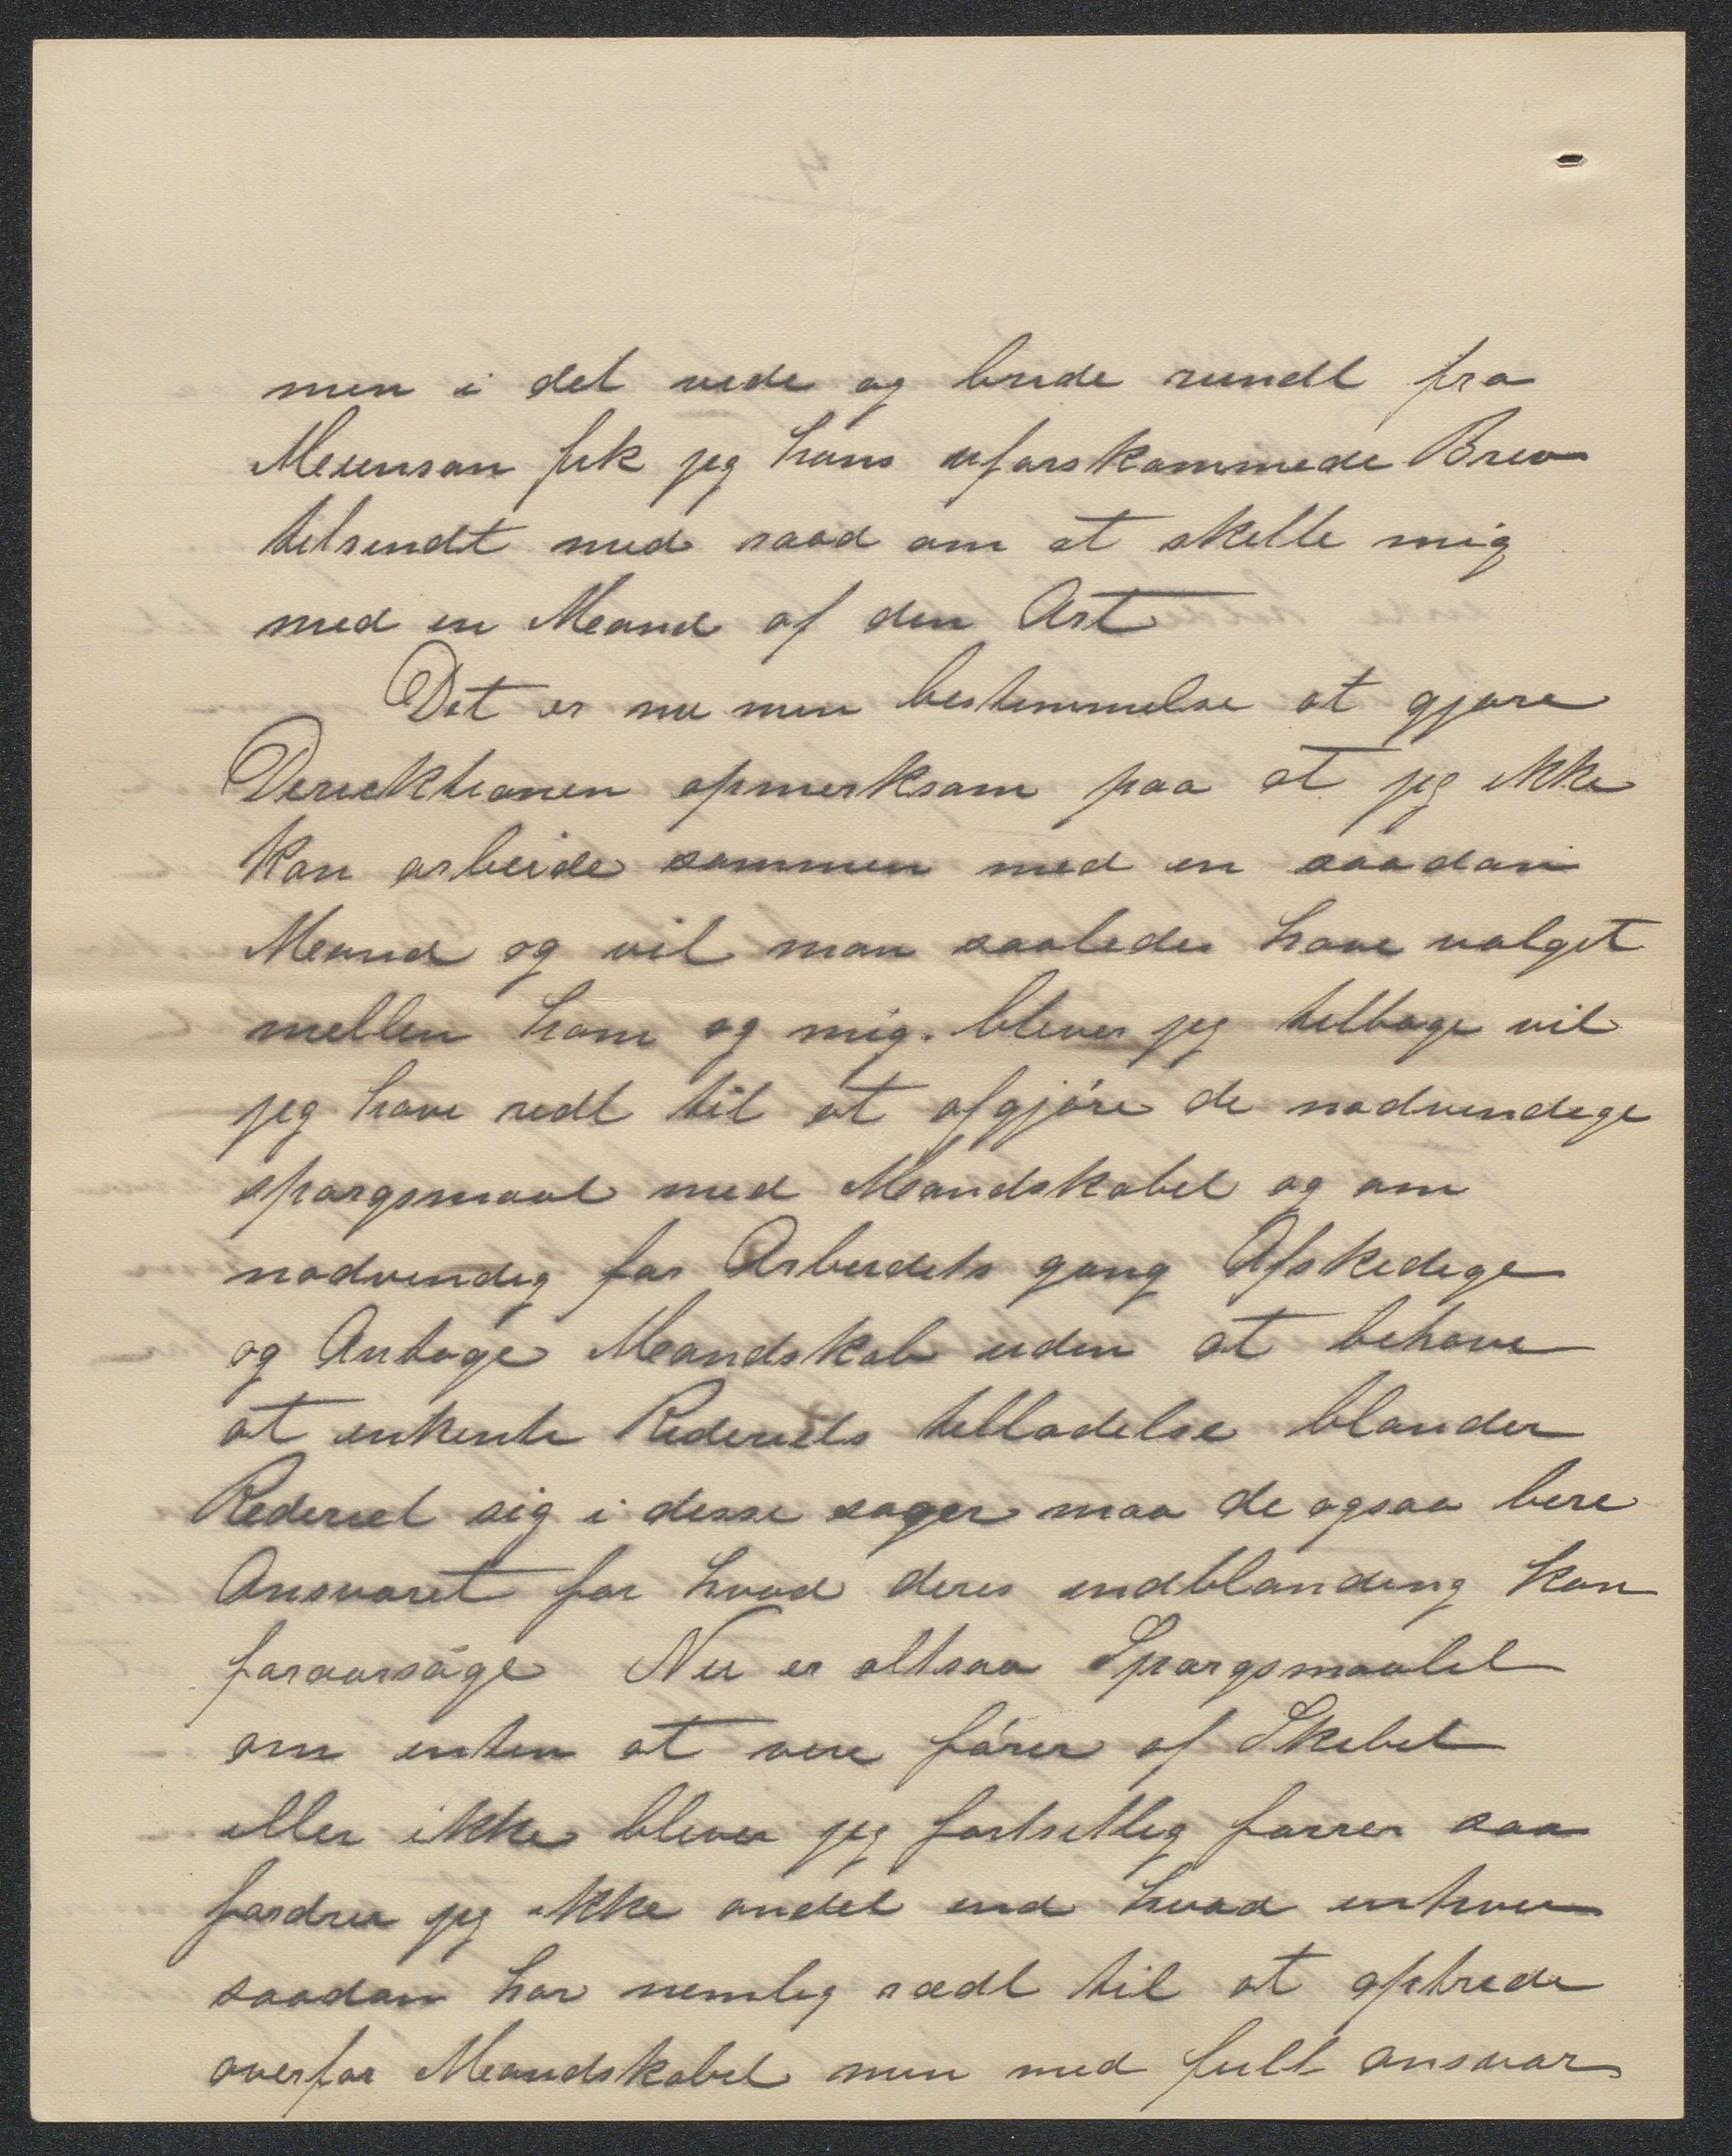 men i det vide og brede rundt fra
Meunson fik jeg hans uforskammede Brev
tilsendt med raad om at skille mig
med en Mand af den Art
Det er nu min bestemmelse at gjøre
Direcktionen opmerksom paa at jeg ikke
kan arbeide sammen med en saadan
Mand og vil man saaledes have valget
mellem ham og mig. bliver jeg tilbage vil
jeg have redt til at afgjøre de nødvendige
spørgsmaal med Mandskabet og om
nødvendig for Arbeidets gang Afskedige
og Antage Mandskab uden at behøve
at enkente Rederiets tilladelse blander
Rederiet sig i disse sager maa de ogsaa bere
Ansvaret for hvad deres indblanding kan
foraarsage Nu er altsaa Spørgsmaalet
om enten at vere fører af Skibet
eller ikke bliver jeg fortsetlig fører saa
fordrer jeg ikke andet end hvad enhver
saadan har nemlig rædt til at optrede
overfor Mandskabet men med fult ansvar